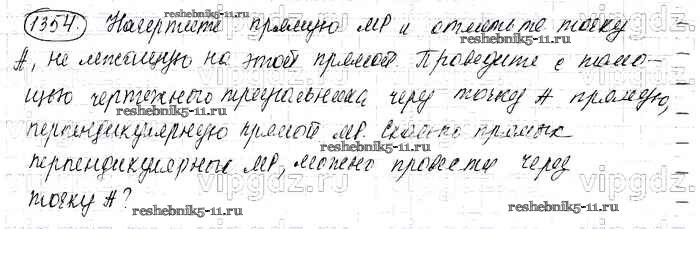 1354. Начертите прямую МР и отметьте точку
А, не лежащую на этой прямой. Проведите с помо-
щью чертежного треугольника через точку А прямую,
перпендикулярную прямой МР. Сколько прямых
перпендикулярных МР, можно провести через
точку А?
reshebnik5-11.ru
reshebnik5-11.ru
reshebnik5-11.ru
reshebnik5-11.ru
reshebnik5-11.ru
reshebnik5-11.ru
vipgdz.ru
vipgdz.ru
vipgdz.ru